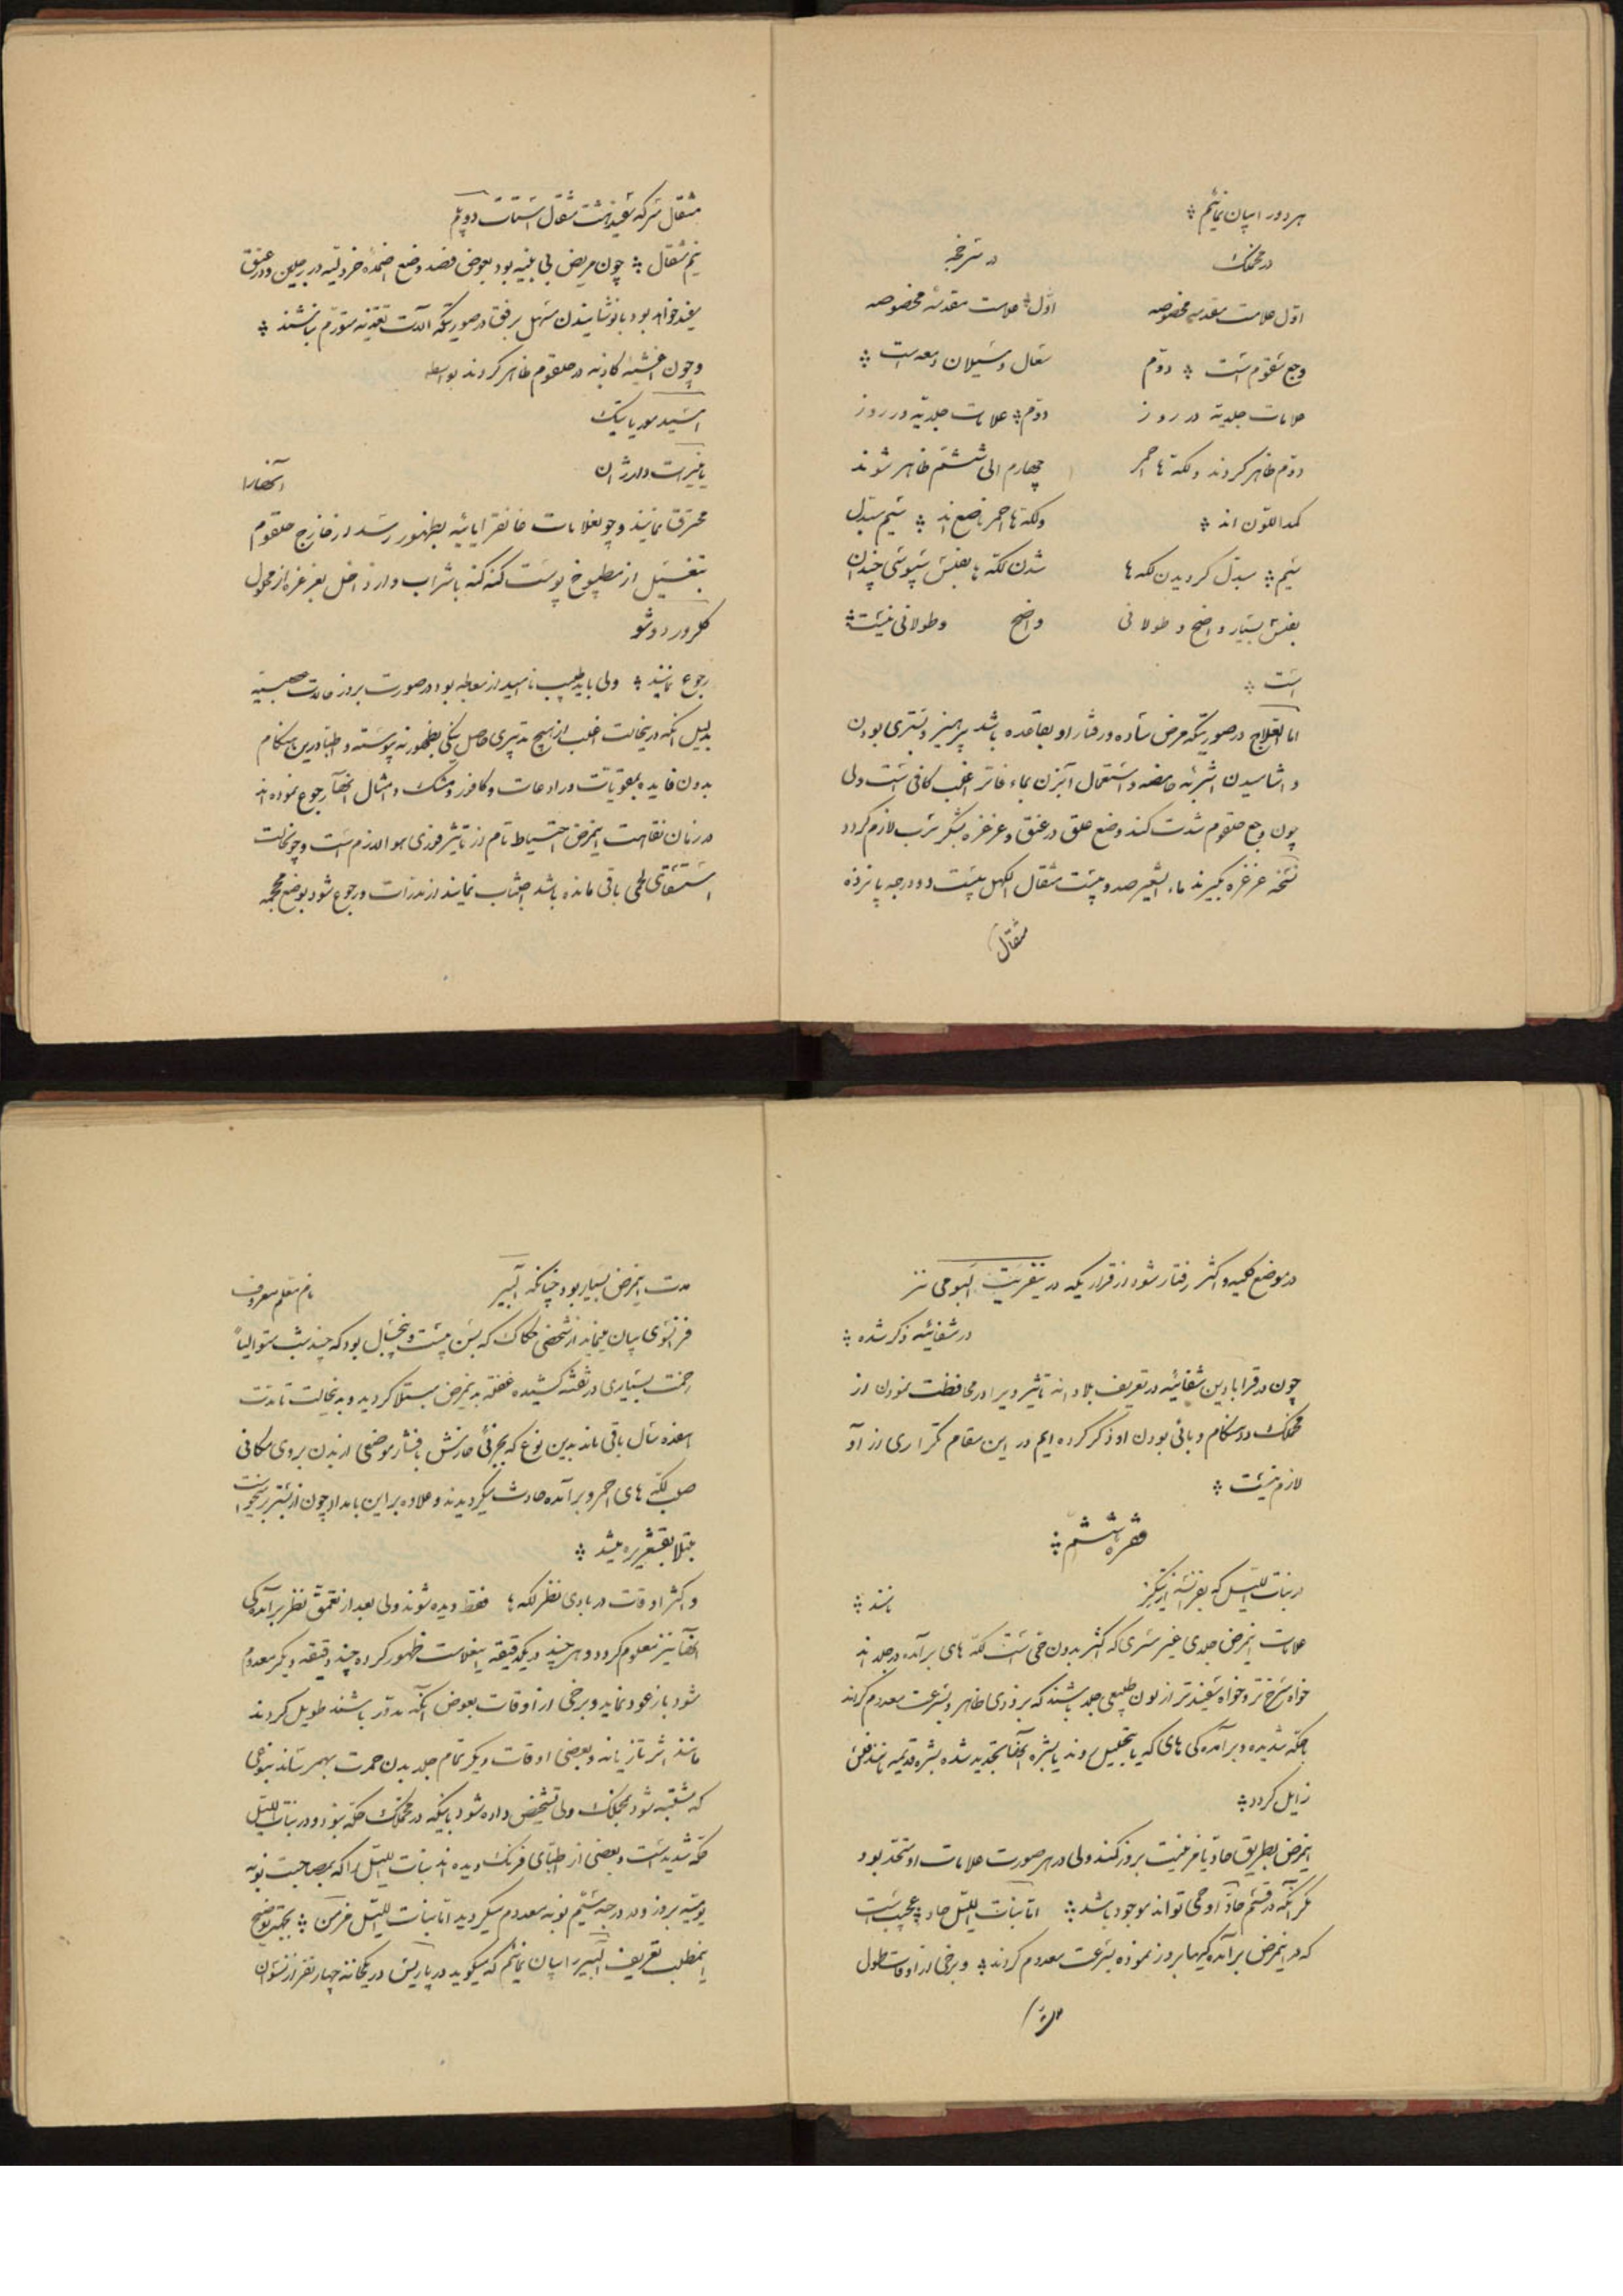 هر دو را بیان نمائیم
در مخملک در سرخجه
اوّل علامت مقدمه مخصوصه اوّل علامت مقدمه مخصوصه
وجع حلقوم است دوّم سعال و سیلان دمعه است
علامات جلدیه در روز دوّم علامات جلدیه در روز
دوّم ظاهر گردند و لکه‌ها احمر چهارم الی ششم ظاهر شوند
کمد اللون اند ولکه‌ها احمر ناصع‌اند سیم مبدل
سیم مبدل گردیدن لکه‌ها شدن لکه‌ها بفلس سپوسی چندان
بفلس بسیار واضح و طولانی واضح و طولانی نیست
است
اما العلاج در صورتیکه مرض ساده و رفتار او بقاعده باشد پرهیز و بستری بودن
و آشامیدن اشربه حامضه و استعمال آبزن بماء فاتر اغلب کافی است ولی
چون وجع حلقوم شدت کند وضع علق در عنق و غرغره لازم گردد
نسخه غرغره بگیرند ماء الشعیر صد و بیست مثقال الکهل بیست و دو درجه پانزده
مثقال
مثقال سرکه سفید هشت مثقال
نیم مثقال چون مریض بی بنیه بود بعوض فصد وضع اضمده خردلیه در رجلین و در عنق
مفید خواهد بود با نوشانیدن مسهل برفق در صورتیکه آلات تغذیه متورّم نباشند
و چون اغشیه کاذبه در حلقوم ظاهر گردند بواسطه
اسید موریاتیک
یا نیترات دارژان آنها را
محترق نمایند و چون علامات غانقرایائیه بظهور رسد از خارج حلقوم
بتغسیل از مطبوخ پوست کنه کنه با شراب و از داخل بغرغره از محلول
کلرور دو شو
رجوع نمایند ولی باید طبیب ناامید از معالجه بود در صورت بروز علامات عصبیه
بدلیل آنکه در اینحالت اغلب از هیچ تدبیری حاصل نیکی بظهور نه پیوسته و اطبا در این هنگام
بدون فایده بمقویات و رادعات و کافور و مشک و امثال آنها رجوع نموده‌اند
در زمان نقاهت اینمرض احتیاط تام از تأثیر فوری هوا لازم است و چون حالت
استسقای لحمی باقی مانده باشد اجتناب نمایند از مدرات و رجوع شود بوضع محجمه
در موضع کلیه و اکثر رفتار شود از قراریکه در نفریت البومی نز
در شفائیه ذکر شده
چون در قرابادین شفائیه در تعریف بلادانه تأثیر ویرا در محافظت نمودن از
مخملک در هنگام وبائی بودن او ذکر کرده‌ایم در این مقام تکراری از آو
لازم نیست
فقره ششم
در بنات اللیل که بفرانسه ارتیکر نامند
علامات اینمرض جلدی غیر مسری که اکثر بدون حمی است لکه‌های برآمده در جلد اند
خواه سرخ‌تر و خواه سفیدتر از لون طبیعی جلد باشند که بزودی ظاهر و بسرعت معدوم گردند
با حکه شدیده و برآمدگی‌های که یا بتحلیل روند یا بشره آنها تجدید شده بشره قدیمه مانند فلس
زایل گردد
اینمرض بطریق حاد یا مزمنیت بروز کند ولی در هر صورت علامات او متحد بود
مگر آنکه در قسم حاد او حمی تواند موجود باشد اما بنات اللیل حاد عجیب است
که در اینمرض برآمدگیها بروز نموده بسرعت معدوم گردند و برخی از اوقات طول
مدت
مدت اینمرض بسیار بود چنانکه آلیبر نام معلم معروف
فرانسوی بیان مینماید از شخصی حکاک که بسن بیست و پنجسال بود که چند شب متوالیاً
زحمت بسیاری در نقشه کشیده غفلةً بدینمرض مبتلا گردید و بدینحالت تا مدت
هفده سال باقی ماند بدین نوع که بجزئی خارش یا فشار موضعی از بدن بروی مکانی
صلب لکه‌های احمر و برآمده حادث میگردیدند و علاوه بر این بامداد چون از بستر برمیخواست
مبتلا بقشعریره میشد
و اکثر اوقات در بادی نظر لکه‌ها فقط دیده شوند ولی بعد از تعمق نظر برآمدگی
آنها نیز معلوم گردد و هر چند در یکدقیقه اینعلامت ظهور کرده چند دقیقه دیگر معدوم
شود باز عود نماید و برخی از اوقات بعوض آنکه مدور باشند طویل گردند
مانند اثر تازیانه و بعضی اوقات دیگر تمام جلد بدن حمرت بهمرساند بنوعی
که مشتبه شود بمخملک ولی تشخیص داده شود باینکه در مخملک حکه نبود و در بنات اللیل
حکه شدید است و بعضی از اطبای فرنگ دیده‌اند بنات اللیل را که بمصاحبت نوبه
یومیه بروز و در درجه سیّم نوبه معدوم میگردید اما بنات اللیل مزمن بجهة توضیح
اینمطلب تعریف آلیبر را بیان نمائیم که میگوید در پاریس در یکخانه چهار نفر از نسوان